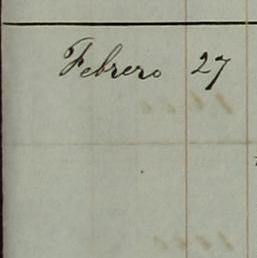 Febrero 27